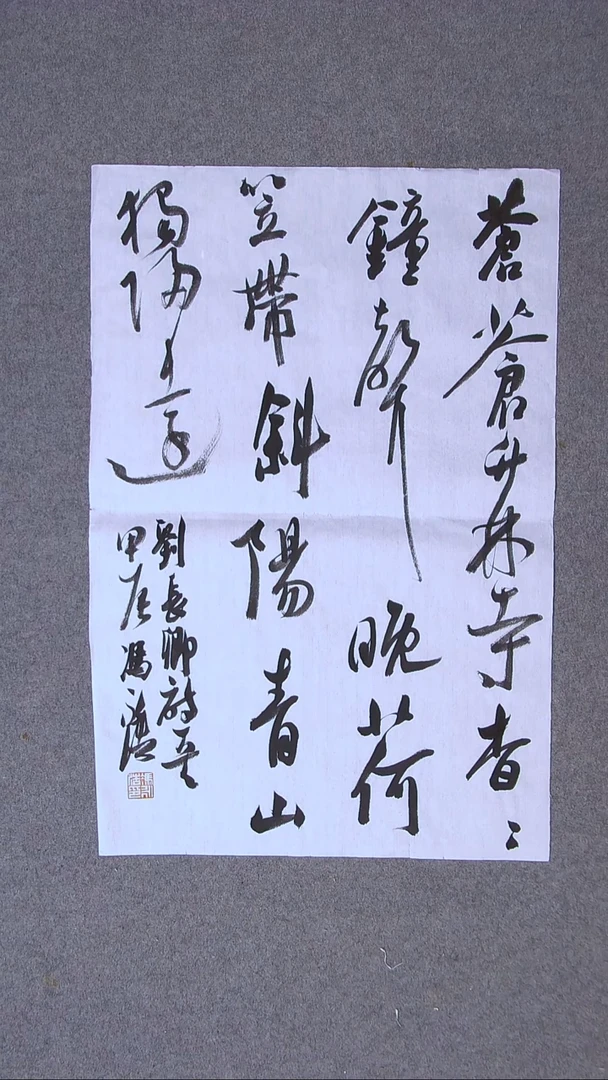 蒼蒼竹林寺杳〻
鐘聲晚荷
笠帶斜陽青山
獨歸遠
劉長卿詩
甲辰馮